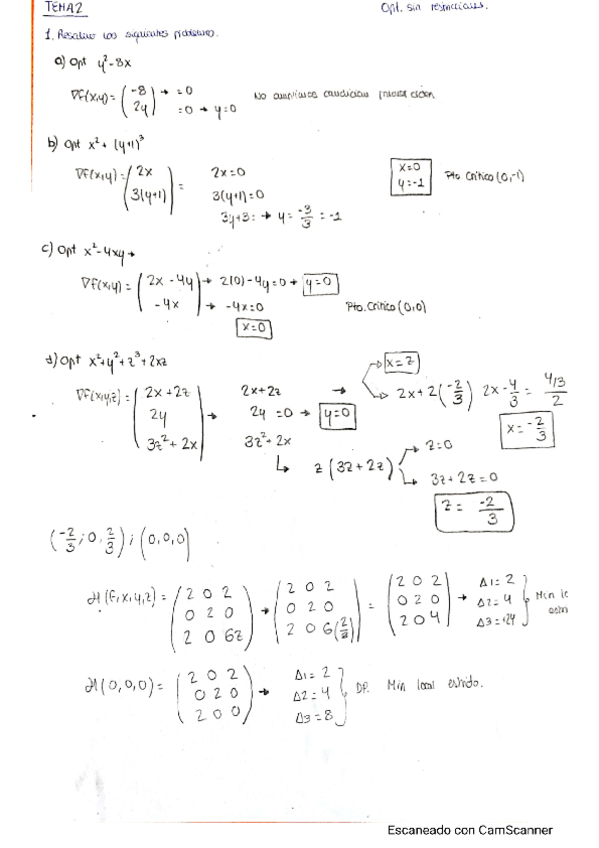 TEMA2 Opt. sin restricciones.
1. Resolver los siguientes problemas.
a) Opt y²-8x
∇f(x,y)= (-8 → =0
2y) =0 → y=0 No condición
b) Opt x²+(y+1)³
∇f(x,y)= (2x
3(y+1)) = 2x=0
3(y+1)=0
3y+3= → y= -3/3 = -1
x=0
y=-1
Pto Crítico (0,-1)
c) Opt x²-4xy →
∇f(x,y)= (2x - 4y → 2(0)-4y=0 → y=0
-4x) → -4x=0
x=0
Pto. Crítico (0,0)
d) Opt x²+y²+z³+2xz
∇f(x,y,z)= (2x+2z
2y
3z²+2x) → 2x+2z →
2y =0 → y=0
3z²+2x
x=z
2x+2(-2/3) 2x-4/3 = 4/3/2
x= -2/3
↳ z(3z+2z) z=0
3z+2z=0
z= -2/3
(-2/3; 0, 2/3) ; (0,0,0)
H(f,x,y,z)= (2 0 2
0 2 0
2 0 6z) → (2 0 2
0 2 0
2 0 6(2/3)) = (2 0 2
0 2 0
2 0 4) → Δ1=2
Δ2=4
Min
H(0,0,0)= (2 0 2
0 2 0
2 0 0) → Δ1=2
Δ2=4
Δ3=8
DP. Min local estricto.
Escaneado con CamScanner